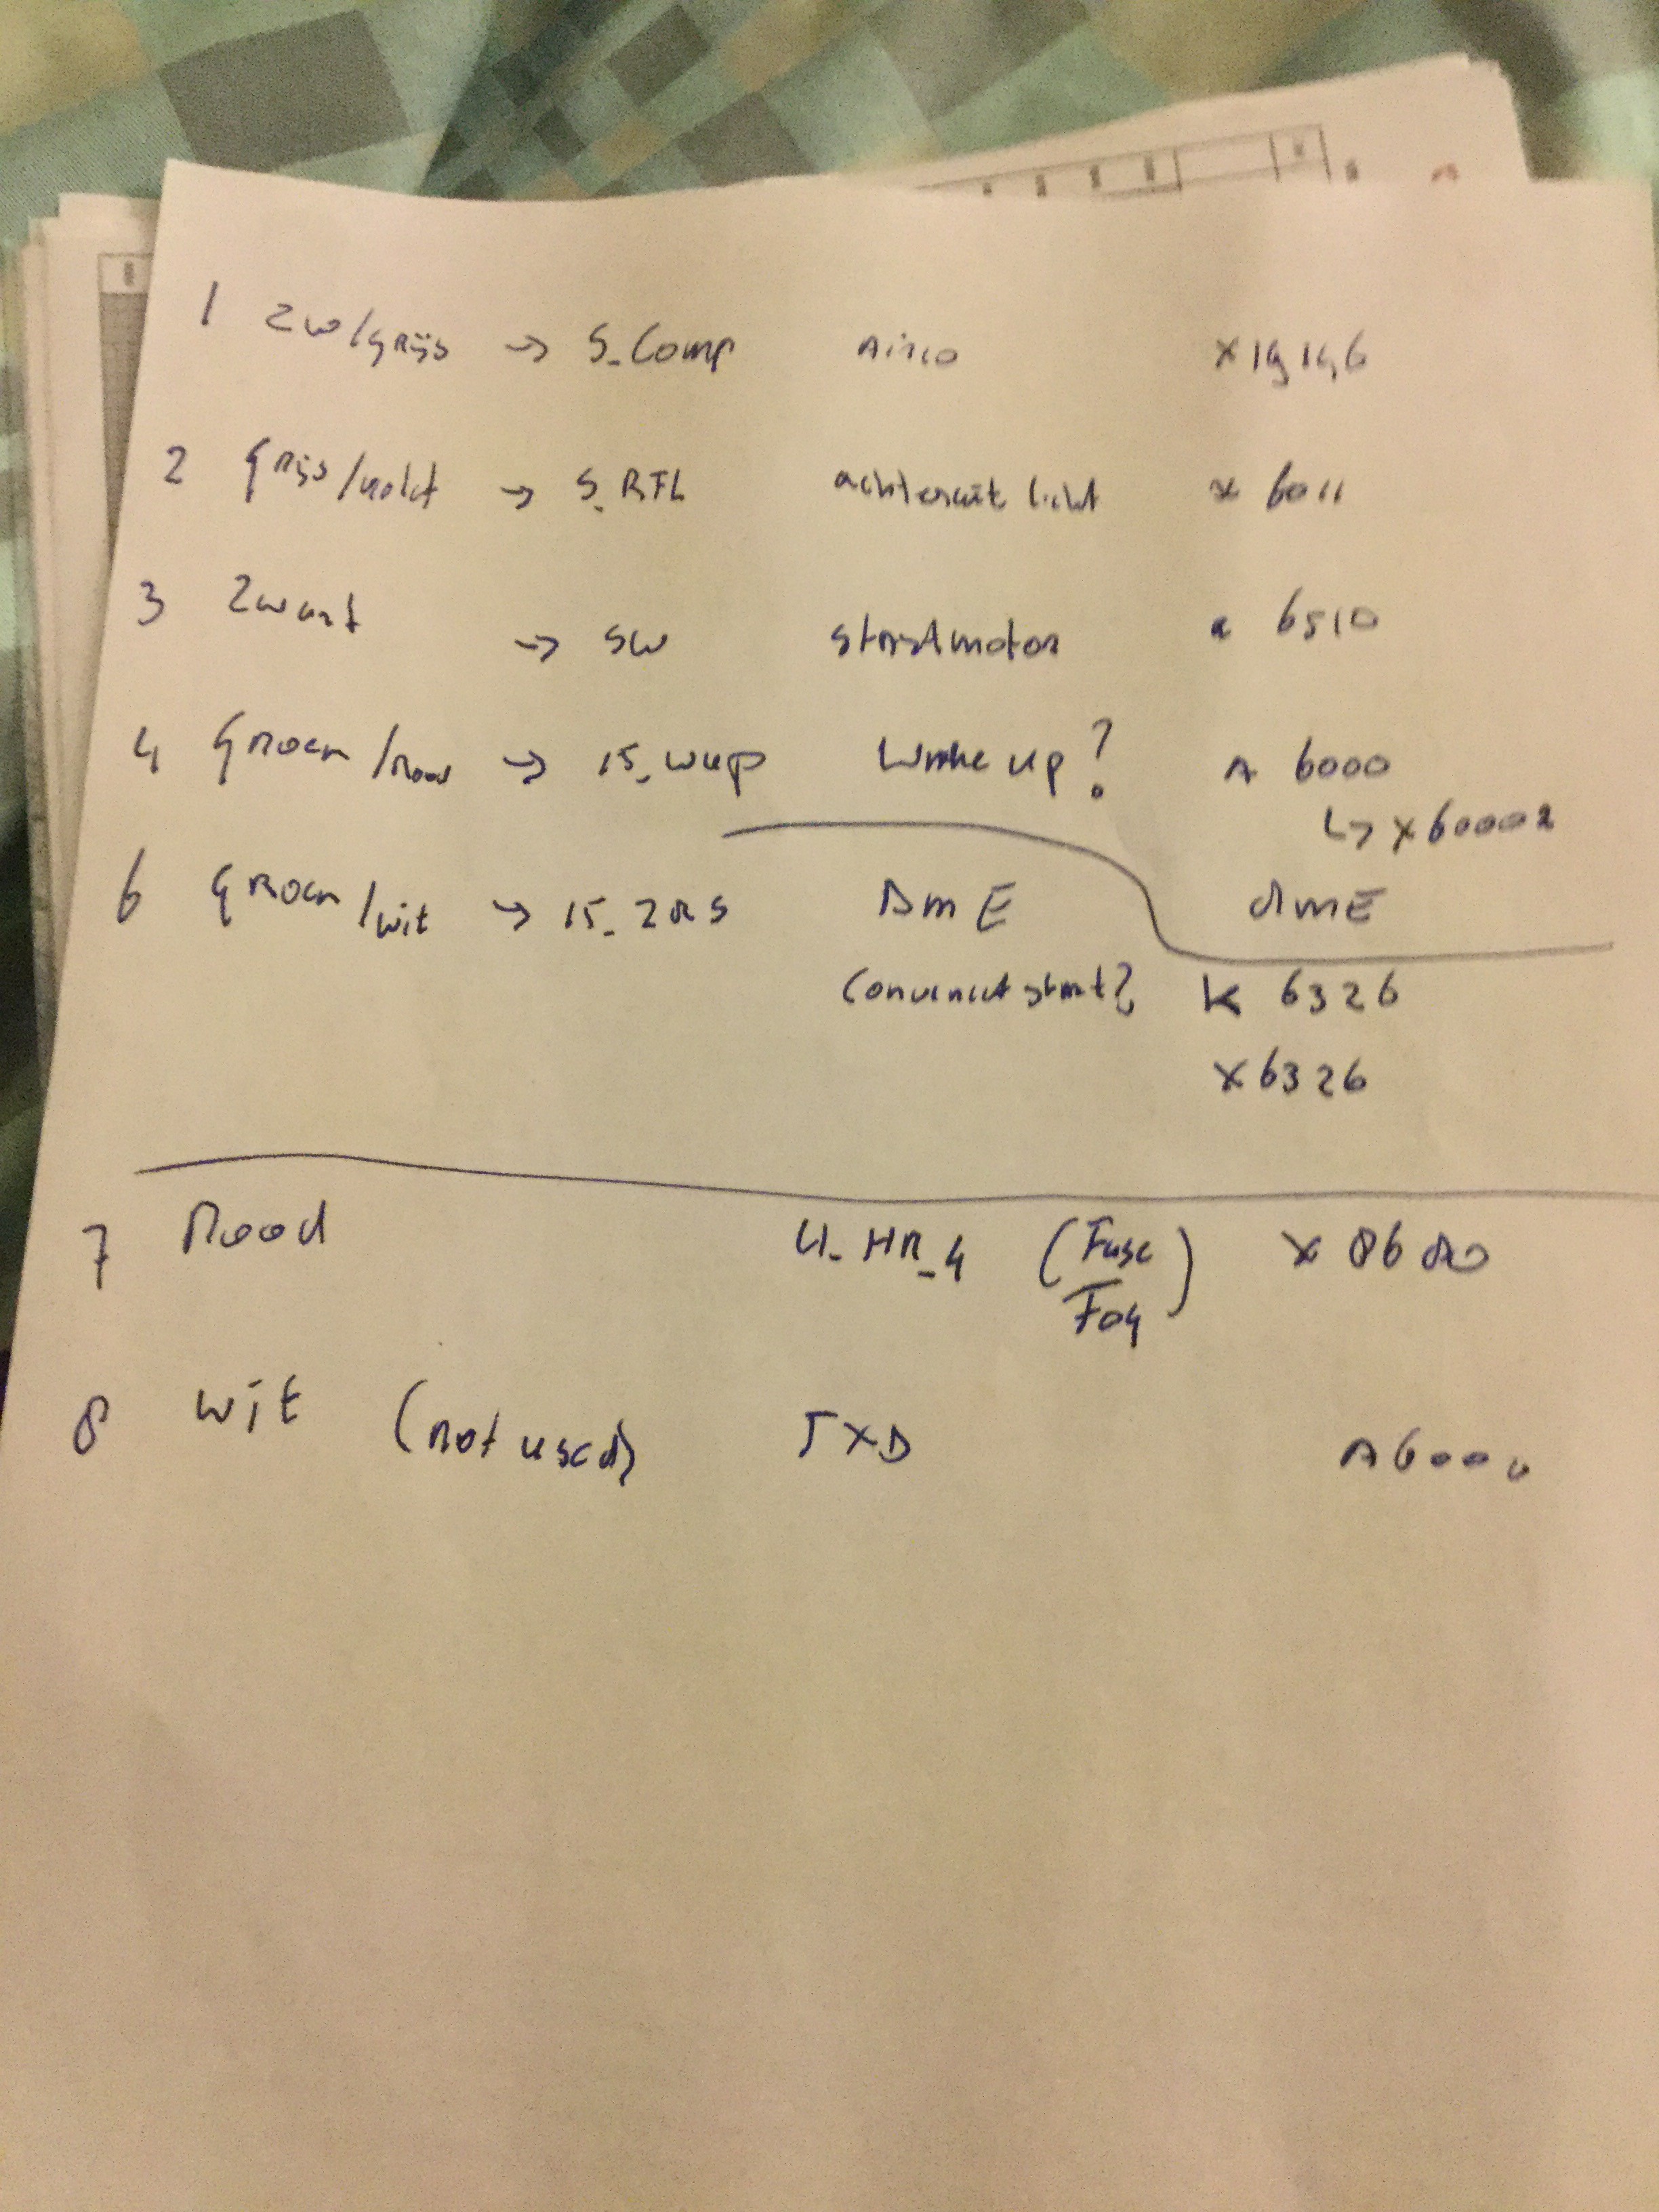 1 zw/grijs → S_Comp Airco X19196
2 grijs/violet → S_RFL achteruit licht x 6011
3 Zwart → SW startmotor x 6510
4 groen/rood → 15_wup Wake up? A 6000
↳ X60002
6 groen/wit → 15_ZRS DME DME
Convenient start? K 6326
X6326
7 Rood U_HR_4 (Fuse X 8680
Fog)
8 wit (not used) TXD A6000